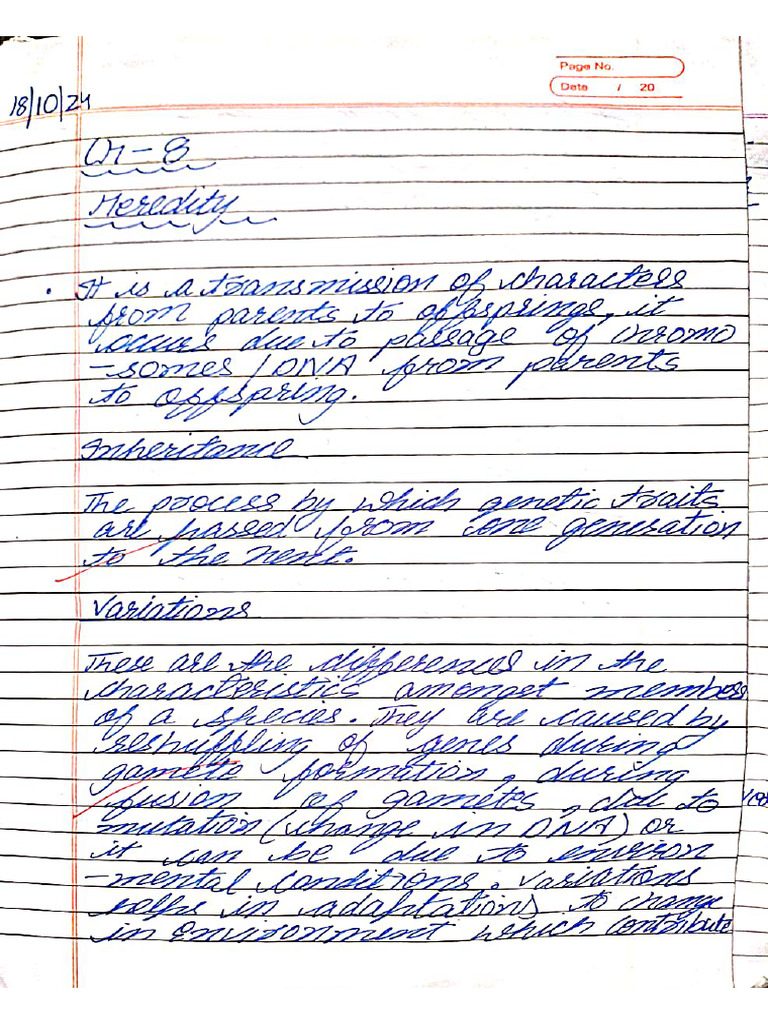 Page No.
Date / 20
18/10/24
Ch-8
Heredity
. It is a transmission of characters
from parents to offsprings, it
occurs due to passage of chromo
-somes / DNA from parents
to offspring.
Inheritance
The process by which genetic traits
are passed from one generation
to the next.
Variations
These are the differences in the
characteristics amongst members
of a species. They are caused by
reshuffling of genes during
gamete formation, during
fusion of gametes, due to
mutation (change in DNA) or
it can be due to environ
-mental conditions. Variations
helps in adaptations to change
in environment which contribute